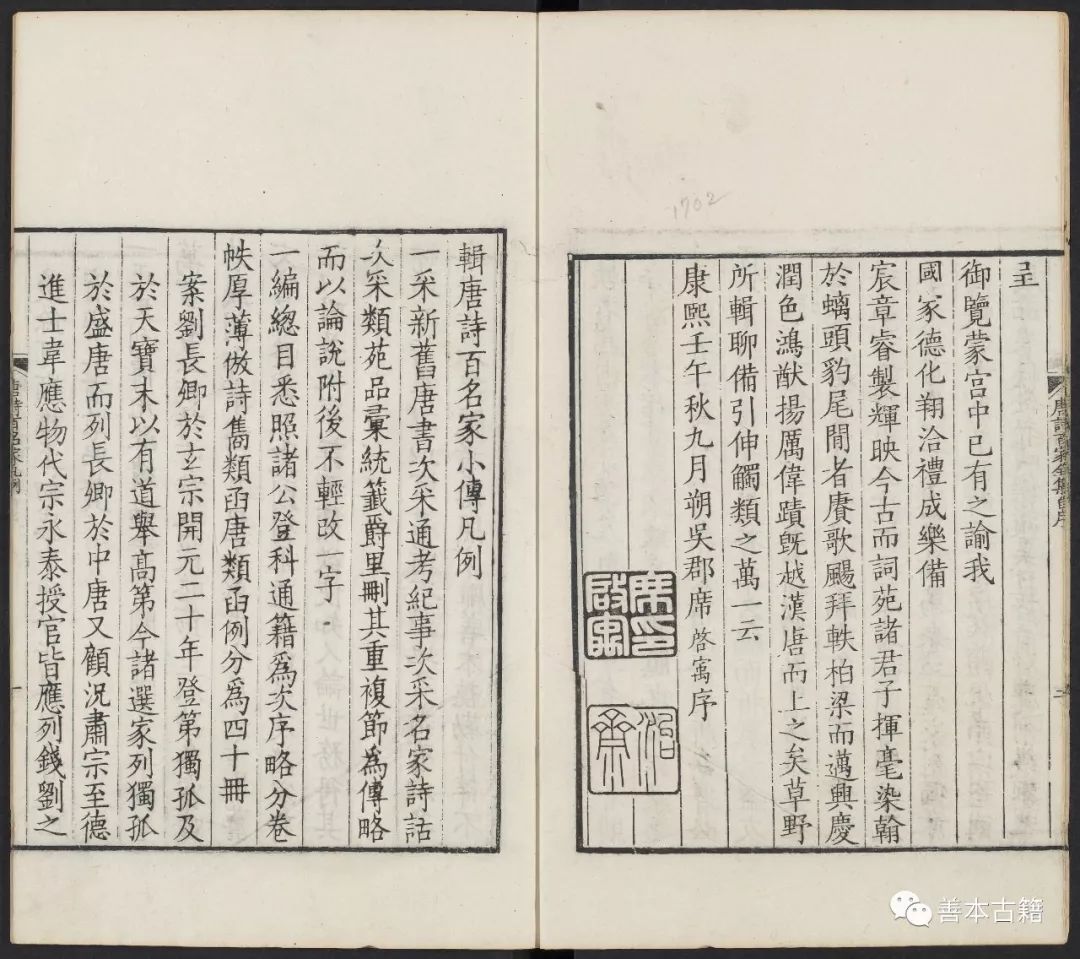 呈
御覽蒙宫中已有之諭我
國家德化翔洽禮成樂備
宸章睿製輝映今古而詞苑諸君子揮毫染翰
於螭頭豹尾閒者賡歌颺拜軼柏梁而邁興慶
潤色鴻猷揚厲偉蹟旣越漢唐而上之矣草野
所輯聊備引伸觸類之萬一云
康熙壬午秋九月朔吳郡席啓寓序
席印啟寓
治齋
1702
輯唐詩百名家小傳凡例
一采新舊唐書次采通考紀事次采名家詩話
次采類苑品彙統籤爵里刪其重複節爲傳略
而以論說附後不輕改一字
一編總目悉照諸公登科通籍爲次序略分卷
帙厚薄倣詩雋類函唐類函例分爲四十冊
案劉長卿於玄宗開元二十年登第獨孤及
於天寶末以有道舉高第今諸選家列獨孤
於盛唐而列長卿於中唐又顧況肅宗至德
進士韋應物代宗永泰授官皆應列錢劉之
唐詩百名家凡例
一
善本古籍